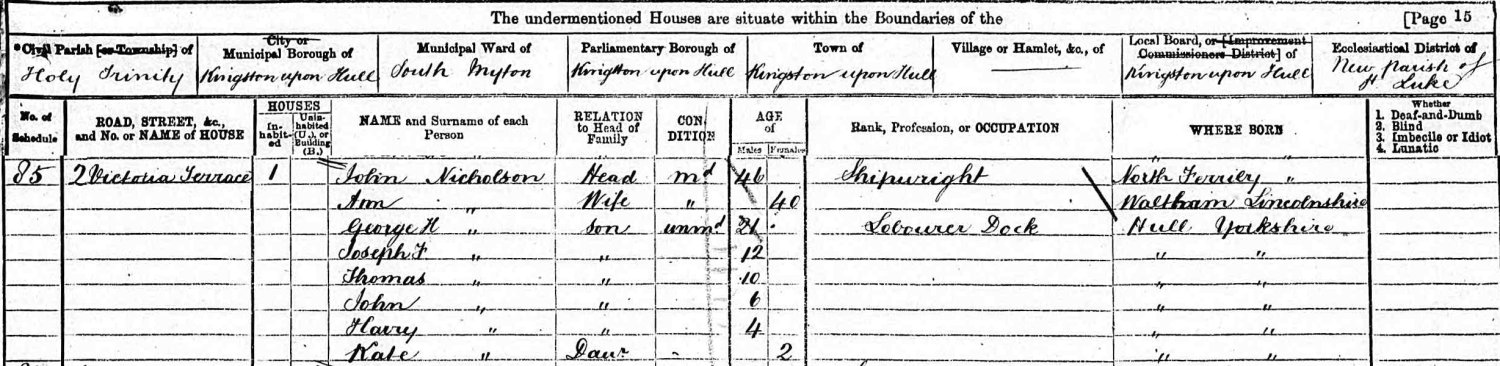 The undermentioned Houses are situate within the Boundaries of the [Page 15
Civil Parish [or Township] of City or Municipal Borough of Municipal Ward of Parliamentary Borough of Town of Village or Hamlet, &c., of Local Board, or [Improvement Commissioners District] of Ecclesiastical District of
Holy Trinity Kingston upon Hull South Myton Kingston upon Hull Kingston upon Hull Kingston upon Hull New Parish of St Luke
No. of Schedule ROAD, STREET, &c., and No. or NAME of HOUSE HOUSES In-habit-ed Unin-habited (U.), or Building (B.) NAME and Surname of each Person RELATION to Head of Family CON-DITION AGE of Males Females Rank, Profession, or OCCUPATION WHERE BORN Whether
1. Deaf-and-Dumb
2. Blind
3. Imbecile or Idiot
4. Lunatic
85 2 Victoria Terrace 1 John Nicholson Head Md 46 Shipwright North Ferriby "
Ann " Wife " 40 Waltham Lincolnshire
George H " Son unmd 21 Labourer Dock Hull Yorkshire
Joseph F " " 12 " "
Thomas " " 10 " "
John " " 6 " "
Harry " " 4 " "
Kate " Daur - 2 " "